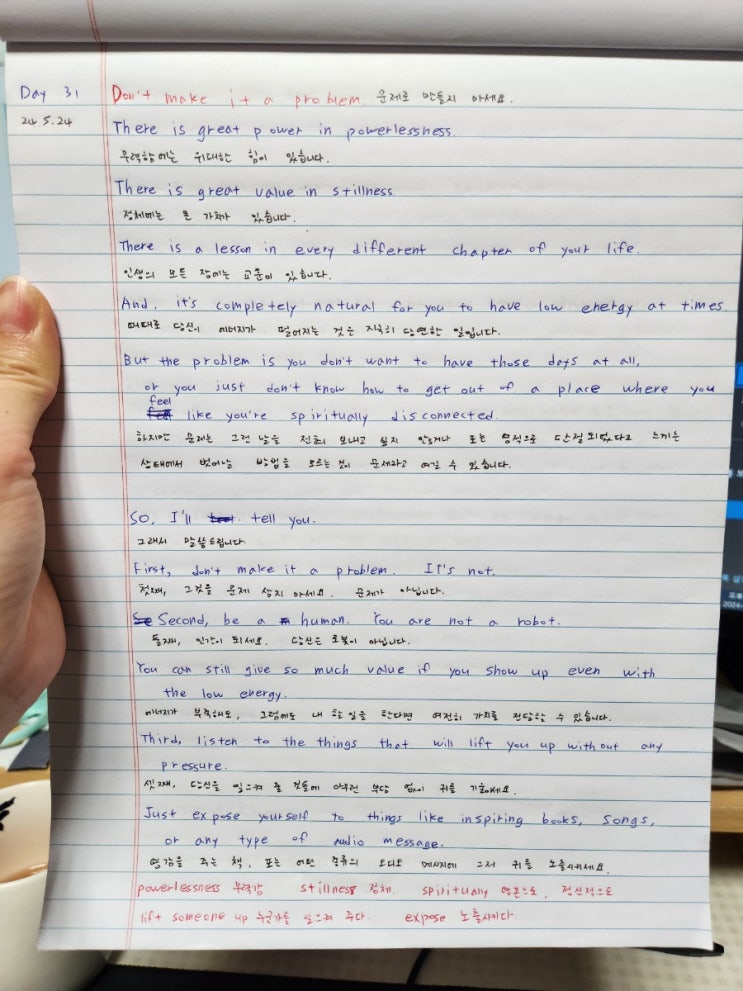 Day 31 Don't make it a problem. 문제로 만들지 마세요.
24 5.24 There is great power in powerlessness.
무력함에는 위대한 힘이 있습니다.
There is great value in stillness.
정체에는 큰 가치가 있습니다.
There is a lesson in every different chapter of your life.
인생의 모든 장에는 교훈이 있습니다.
And, it's completely natural for you to have low energy at times.
때때로 당신이 에너지가 떨어지는 것은 지극히 당연한 일입니다.
But the problem is you don't want to have those days at all,
or you just don't know how to get out of a place where you
feel
like you're spiritually disconnected.
하지만 문제는 그런 날을 전혀 보내고 싶지 않거나 또는 영적으로 단절되었다고 느끼는
상태에서 벗어날 방법을 모르는 것이 문제라고 여길 수 있습니다.
So, I'll tell you.
그래서 말씀드립니다.
First, don't make it a problem. It's not.
첫째, 그것을 문제 삼지 마세요. 문제가 아닙니다.
Second, be a human. You are not a robot.
둘째, 인간이 되세요. 당신은 로봇이 아닙니다.
You can still give so much value if you show up even with
the low energy.
에너지가 부족해도, 그럼에도 내 할 일을 한다면 여전히 가치를 전달할 수 있습니다.
Third, listen to the things that will lift you up without any
pressure.
셋째, 당신을 일으켜 줄 것들에 아무런 부담 없이 귀를 기울이세요.
Just expose yourself to things like inspiring books, songs,
or any type of audio message.
영감을 주는 책, 또는 어떤 종류의 오디오 메시지에 그저 귀를 노출시키세요.
powerlessness 무력감 stillness 정체. spiritually 영혼으로, 정신적으로
lift someone up 누군가를 일으켜 주다. expose 노출시키다.